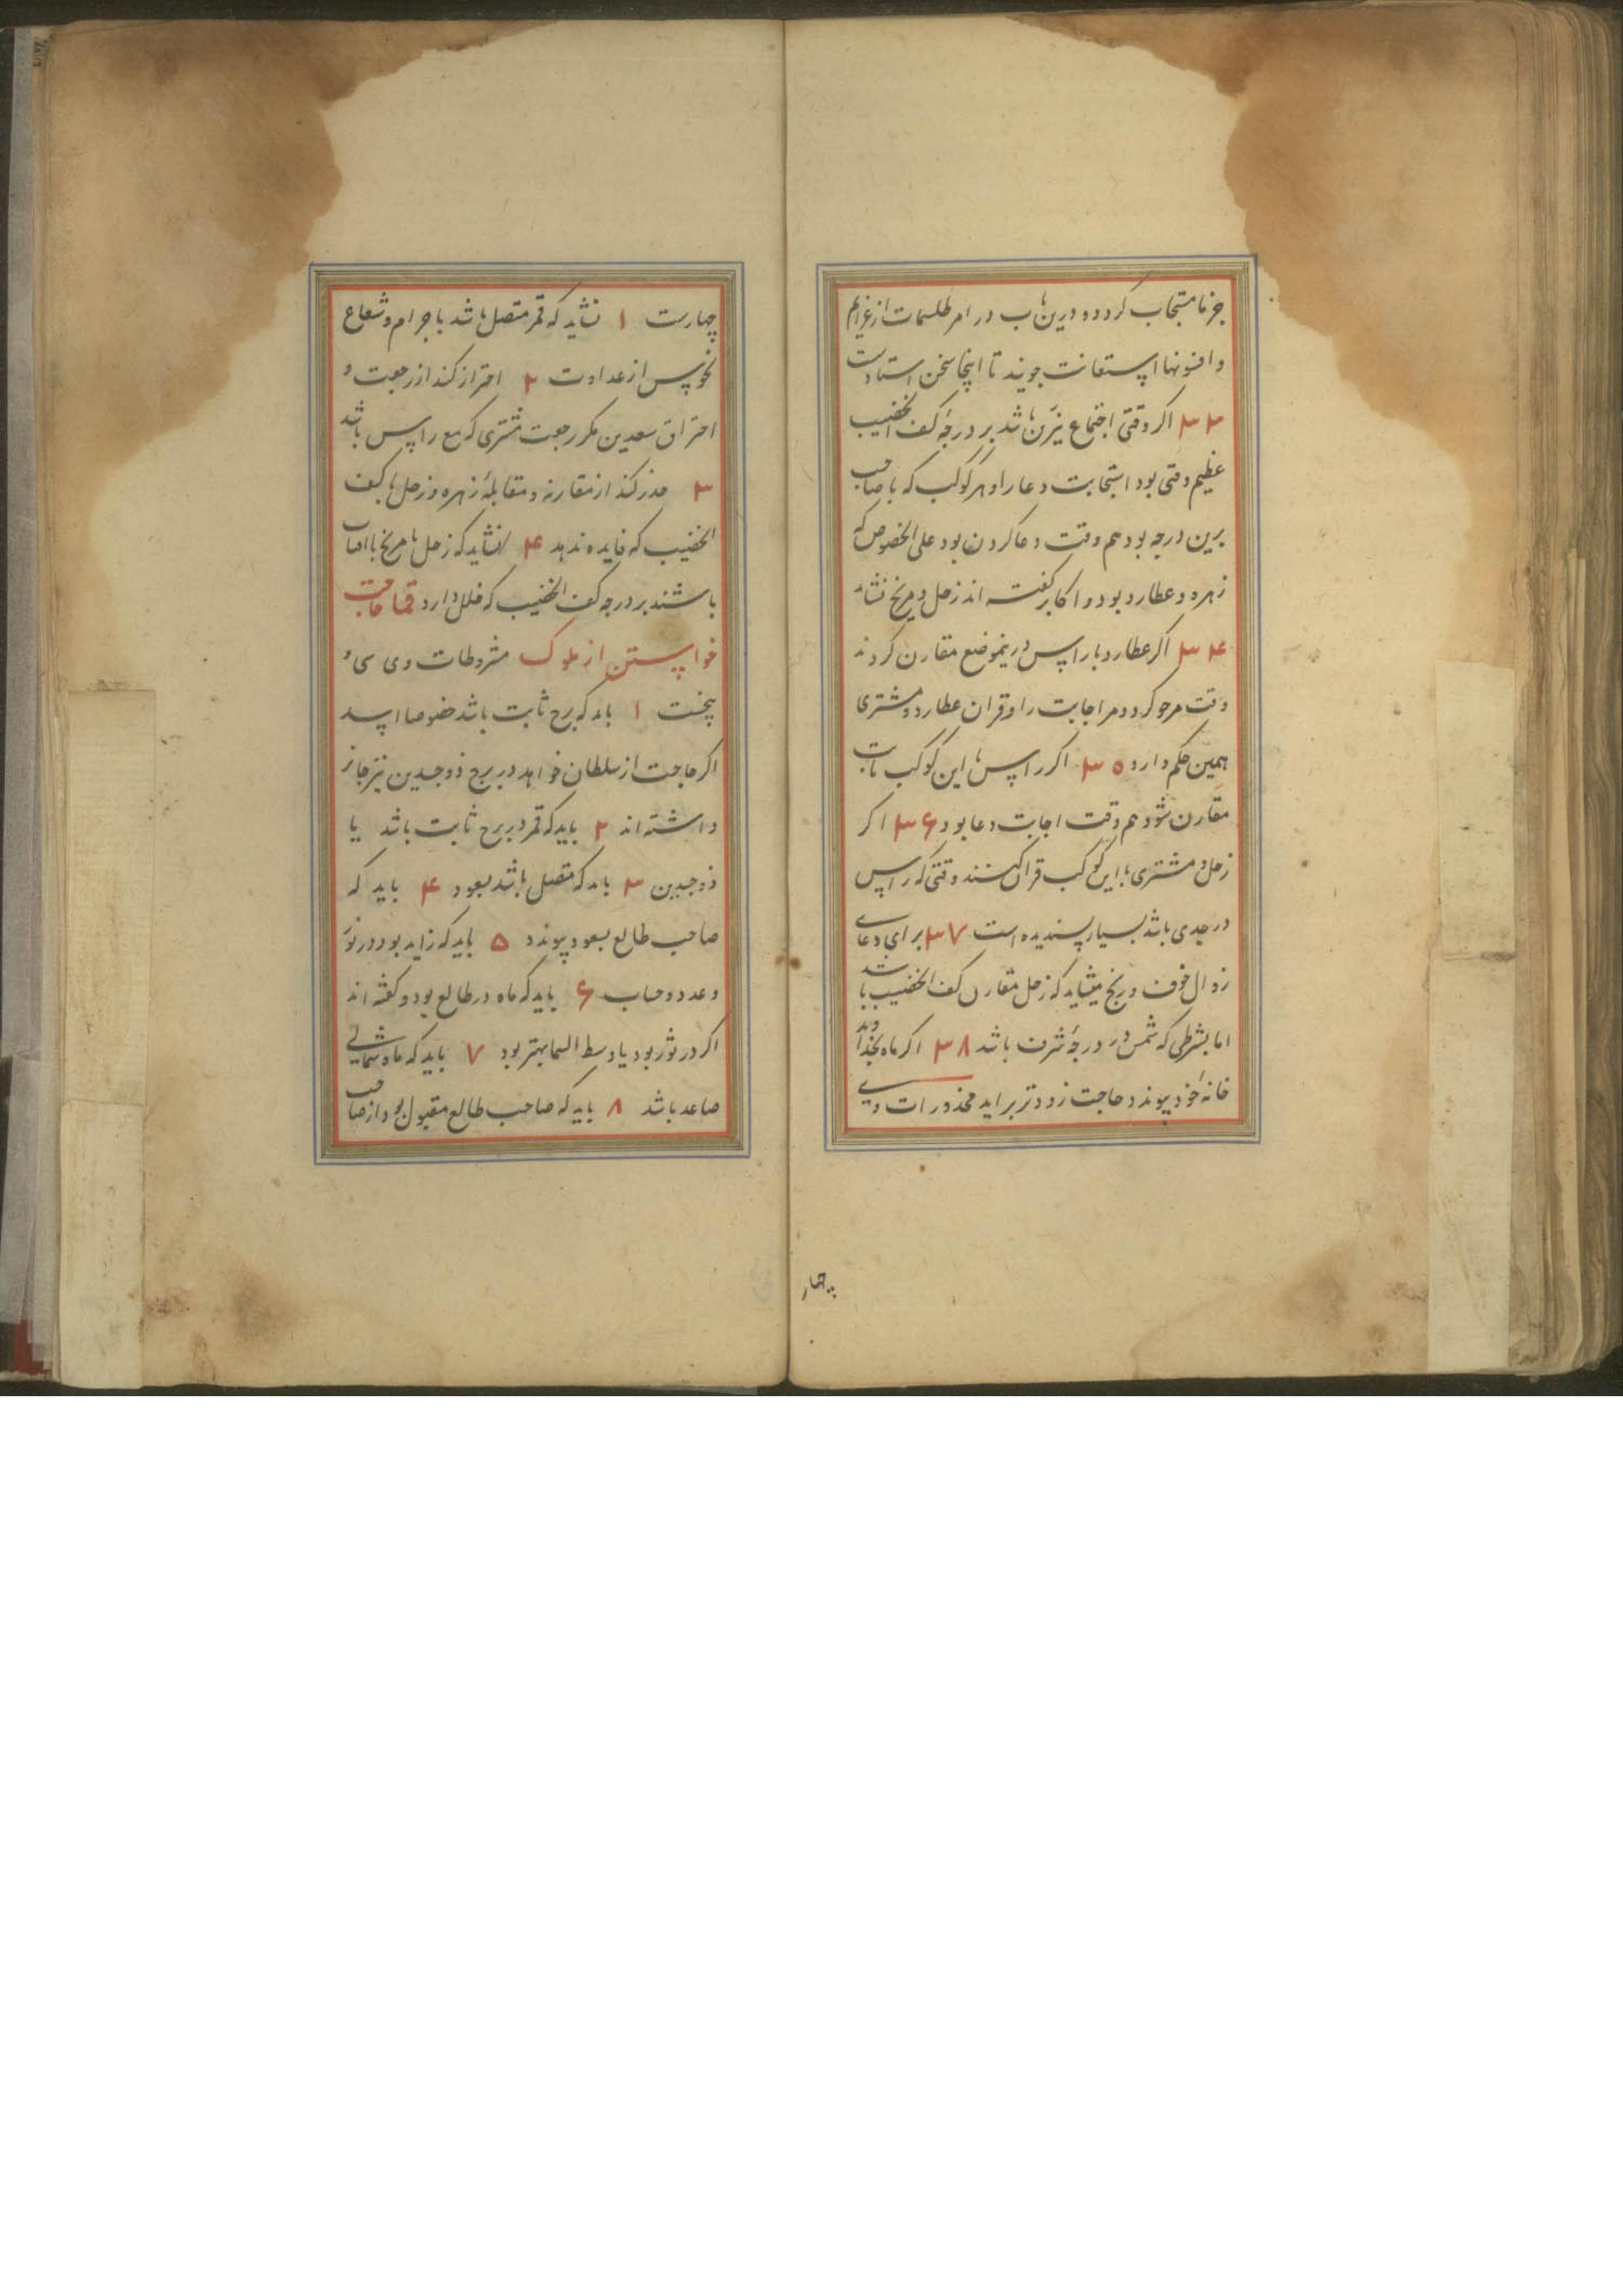 جزما مستجاب کردد و درین باب در امر طلسمات از عزایم
و افسونها استعانت جویند تا اینجا سخن استادست
۳۳ اکر وقتی اجتماع نیرین باشد بر درجه کف الخضیب
عظیم وقتی بود استجابت دعا را و هر کوکب که با صاحب
برین درجه بود هم وقت دعا کردن بود علی الخصوص که
زهره و عطارد بود و اکابر کفته اند زحل و مریخ نشاید
۳۴ اکر عطارد با راس درینموضع مقارن کردند
وقت مرجو کردد مر اجابت را و قران عطارد و مشتری
همین حکم دارد ۳۵ اکر راس با این کوکب ثابت
مقارن شود هم وقت اجابت دعا بود ۳۶ اکر
زحل و مشتری با این کوکب قران کنند وقتی که راس
در جدی باشد بسیار پسندیده است ۳۷ برای دعای
زوال خوف و رنج میشاید که زحل مقارن کف الخضیب باشد
اما بشرطی که شمس در درجه شرف باشد ۳۸ اکر ماه بخداوند
خانه خود پیوندد حاجت زودتر براید محذورات وی
چهار
چهارست ۱ نشاید که قمر متصل باشد با جرام و شعاع
نحوس از عداوت ۲ احتراز کند از رجعت و
احتراق سعدین مکر رجعت مشتری که مع راس باشد
۳ حذر کند از مقارنه و مقابله زهره و زحل با کف
الخضیب که فایده ندهد ۴ نشاید که زحل با مریخ با افتاب
باشند بر درجه کف الخضیب که خلل دارد قما حاجت
خواستن از ملوک مشروطات وی سی و
پنجست ۱ باید که برج ثابت باشد خصوصا اسد
اکر حاجت از سلطان خواهد در برج ذوجسدین نیز جایز
داشته اند ۲ باید که قمر در برج ثابت باشد یا
ذوجسدین ۳ باید که متصل باشد بسعود ۴ باید که
صاحب طالع بسعود پیوندد ۵ باید که زاید بود در نور
و عدد و حساب ۶ باید که ماه در طالع بود و کفته اند
اکر در ثور بود یا وسط السما بهتر بود ۷ باید که ماه شمالی
صاعد باشد ۸ باید که صاحب طالع مقبول بود از صاحب